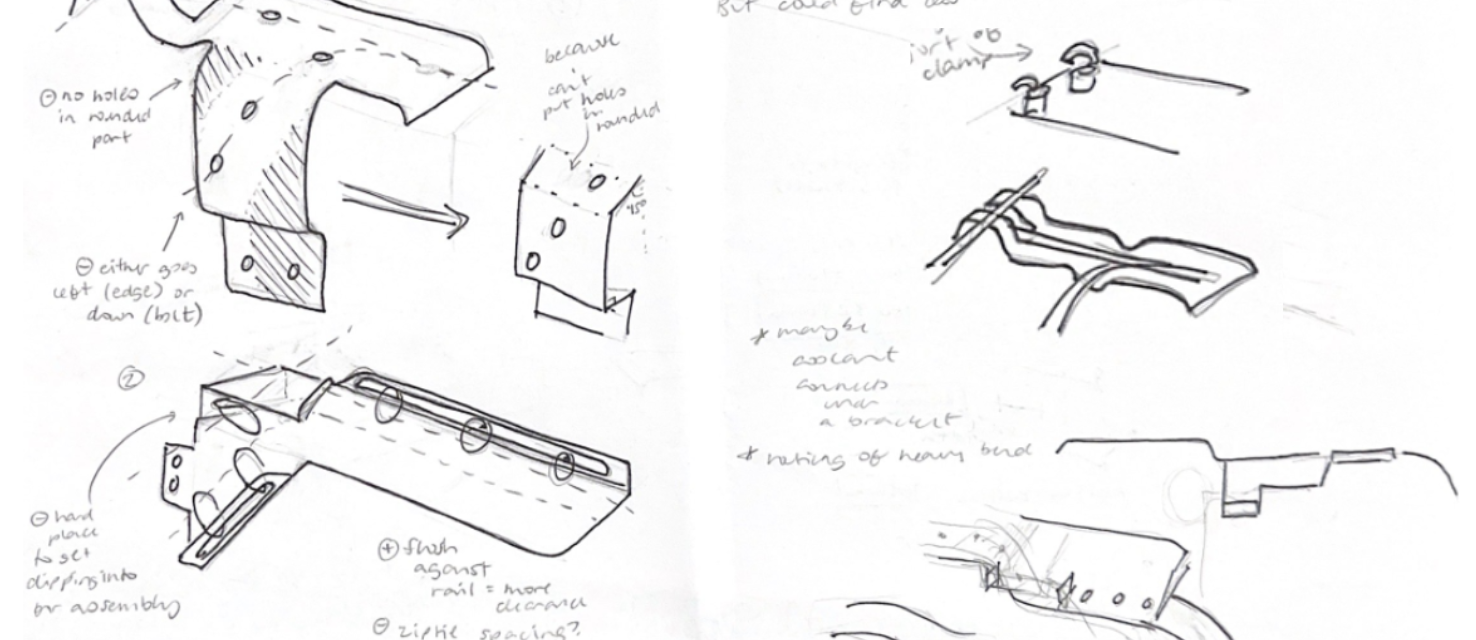 But could find
⊖ no holes
in rounded
part
because
can't
put holes
in
rounded
45°
⊖ either goes
left (edge) or
down (bolt)
②
⊖ hard
place
to get
clipping into
or assembly
⊕ flush
against
rail = more
⊖ ziptie spacing?
sort of
clamp
* maybe
coolant
connects
a bracket
of heavy bend